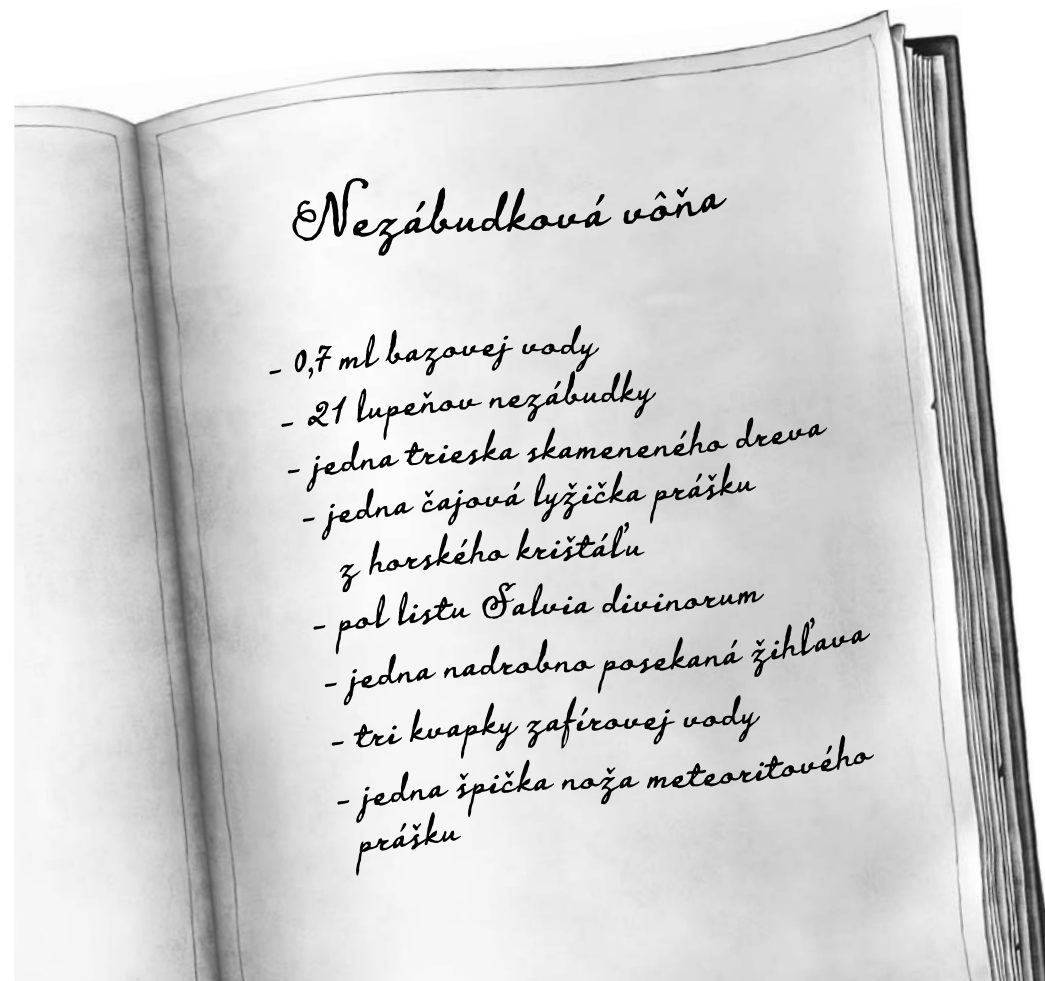 Nezábudková vôňa
- 0,7 ml bazovej vody
- 21 lupeňov nezábudky
- jedna trieska skameneného dreva
- jedna čajová lyžička prášku
z horského krištáľu
- pol listu Salvia divinorum
- jedna nadrobno posekaná žihľava
- tri kvapky zafírovej vody
- jedna špička noža meteoritového
prášku